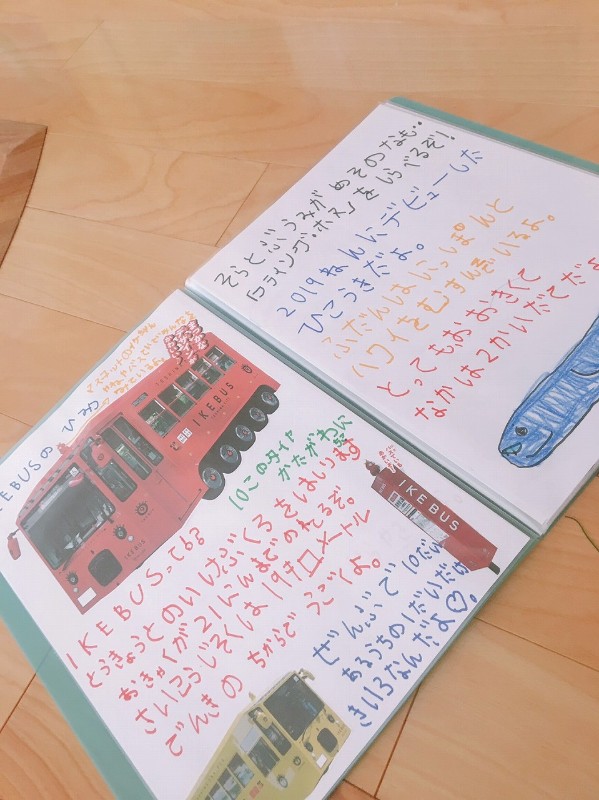 そらとぶうみがめそのなも・・
「フライング・ホヌ」をしらべるぞ!
2019ねんにデビューした
ひこうきだよ。
ふだんはにっぽんと
ハワイをむすんでいるよ。
とってもおおきくて
なかは2かいだてだよ
KEBUSのひみつ
マスコットのイケちゃん
IKEBUS
IKEBUS
10このタイヤ
かたがわに
5こ
IKEBUS
IKEBUSってなに
とうきょうとのいけぶくろをはしります
おきゃくが21にんまでのれるぞ。
さいこうじそくは19キロメートル
でんきのちからでうごくよ。
ぜんぶで10だい
あるうちの1だいだけ
きいろなんだよ♡。